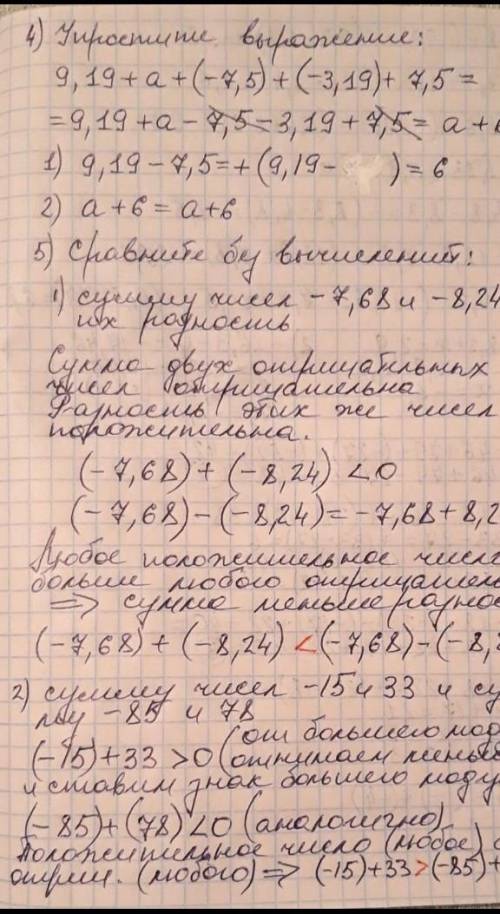 4) Упростите выражение:
9,19 + a + (-7,5) + (-3,19) + 7,5 =
= 9,19 + a - 7,5 - 3,19 + 7,5 = a + 6
1) 9,19 - 7,5 = + (9,19 - ) = 6
2) a + 6 = a + 6
5) Сравните без вычислений:
1) сумму чисел -7,68 и -8,24
их разность
Сумма двух отрицательных
чисел отрицательна
Разность этих же чисел
положительна.
(-7,68) + (-8,24) < 0
(-7,68) - (-8,24) = -7,68 + 8,2
Любое положительное число
больше любого отрицател
=> сумма меньше разнос
(-7,68) + (-8,24) < (-7,68) - (-8,2
2) сумму чисел -15 и 33 и су
му -85 и 78
(от большего мод
(-15) + 33 > 0 (отнимаем меньш
и ставим знак большего моду
(-85) + (78) < 0 (аналогично)
Положительное число (любое)
отриц. (любого) => (-15) + 33 > (-85) +